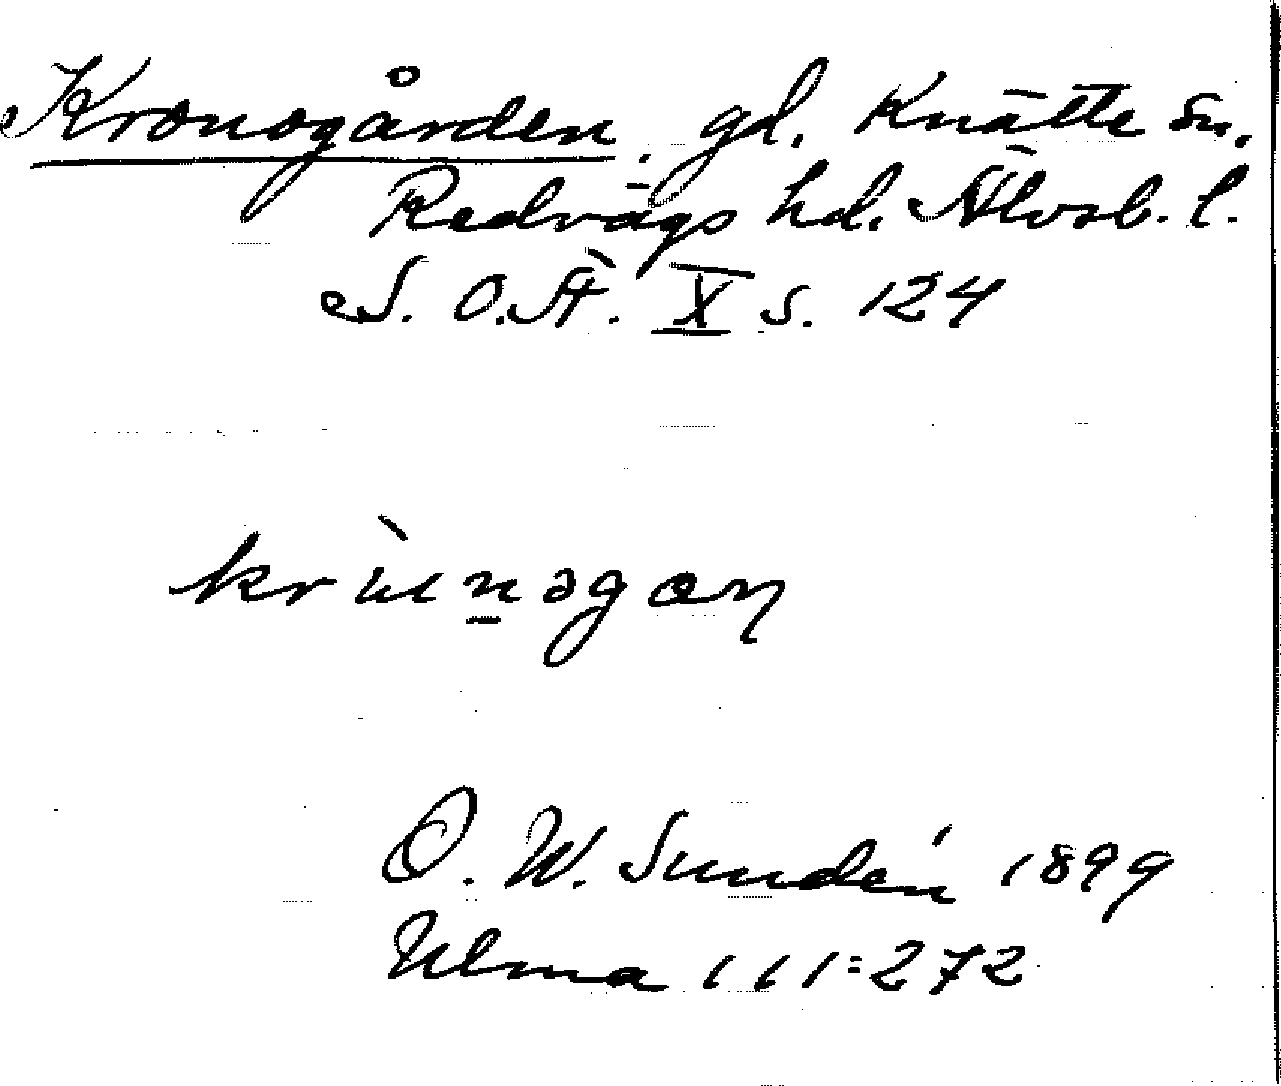 Kronogården. gd. Knätte sn.
Redvägs hd. Älvsb. l.
S. O. Ä. X s. 124
O. W. Sundén 1899
Ulma 111:272